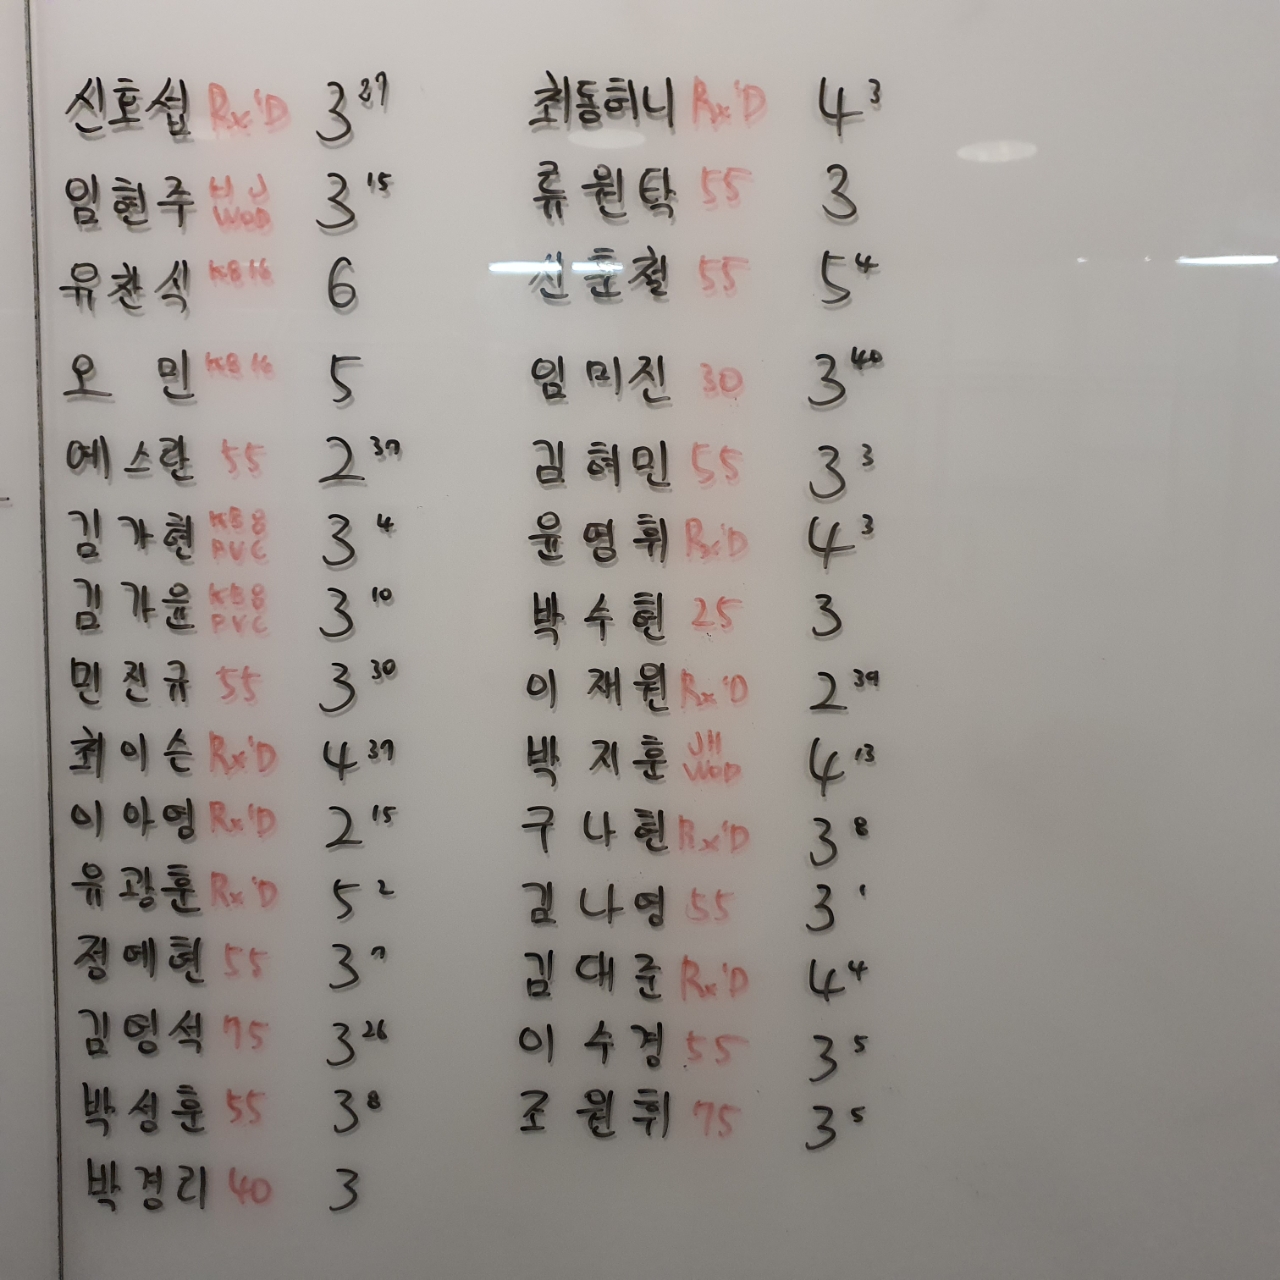 신호섭 Rx'D 3 27
임현주 HJ WOD 3 15
유찬식 KB16 6
오 민 KB16 5
예스란 55 2 37
김가현 KB8 PVC 3 4
김가윤 KB8 PVC 3 10
민진규 55 3 30
최이슨 Rx'D 4 37
이아영 Rx'D 2 15
유광훈 Rx'D 5 2
정예현 55 3 7
김영석 75 3 26
박성훈 55 3 8
박경리 40 3
최동허니 Rx'D 4 3
류원탁 55 3
신훈철 55 5 4
임미진 30 3 40
김혀민 55 3 3
윤영휘 Rx'D 4 3
박수현 25 3
이재원 Rx'D 2 39
박지훈 JH WOD 4 13
구나현 Rx'D 3 8
김나영 55 3 1
김대준 Rx'D 4 4
이수경 55 3 5
조원휘 75 3 5